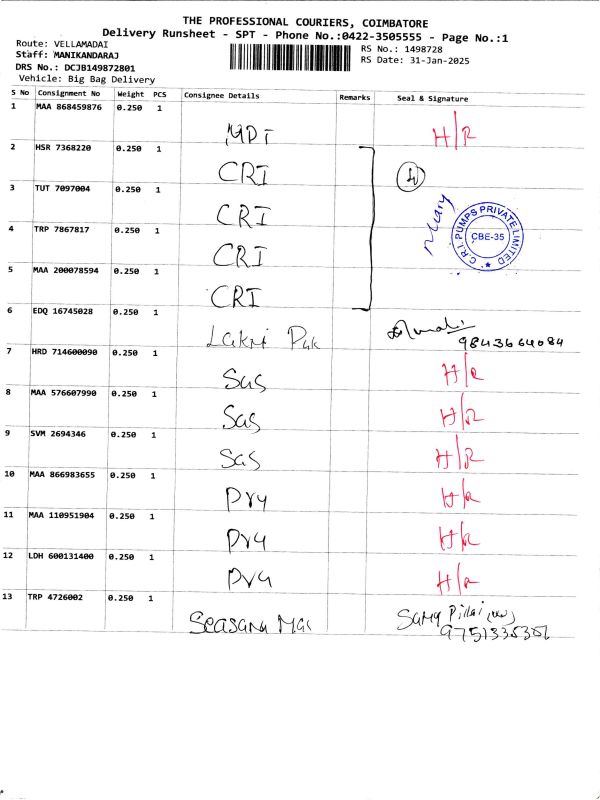 THE PROFESSIONAL COURIERS, COIMBATORE
Delivery Runsheet - SPT - Phone No.:0422-3505555 - Page No.:1
Route: VELLAMADAI
RS No.: 1498728
Staff: MANIKANDARAJ
RS Date: 31-Jan-2025
DRS No.: DCJB149872801
Vehicle: Big Bag Delivery
S No Consignment No Weight PCS Consignee Details Remarks Seal & Signature
1 MAA 868459876 0.250 1 MDT H/R
2 HSR 7368220 0.250 1 CRI
3 TUT 7097004 0.250 1 CRI
4 TRP 7867817 0.250 1 CRI
5 MAA 200078594 0.250 1 CRI
C.R.I. PUMPS PRIVATE LIMITED
CBE-35
6 EDQ 16745028 0.250 1 Lakmi Pak
9843664084
7 HRD 714600090 0.250 1 SaS H/R
8 MAA 576607990 0.250 1 SaS H/R
9 SVM 2694346 0.250 1 SaS H/R
10 MAA 866983655 0.250 1 H/R
11 MAA 110951904 0.250 1 H/R
12 LDH 600131400 0.250 1 H/R
13 TRP 4726002 0.250 1 Samy Pillai